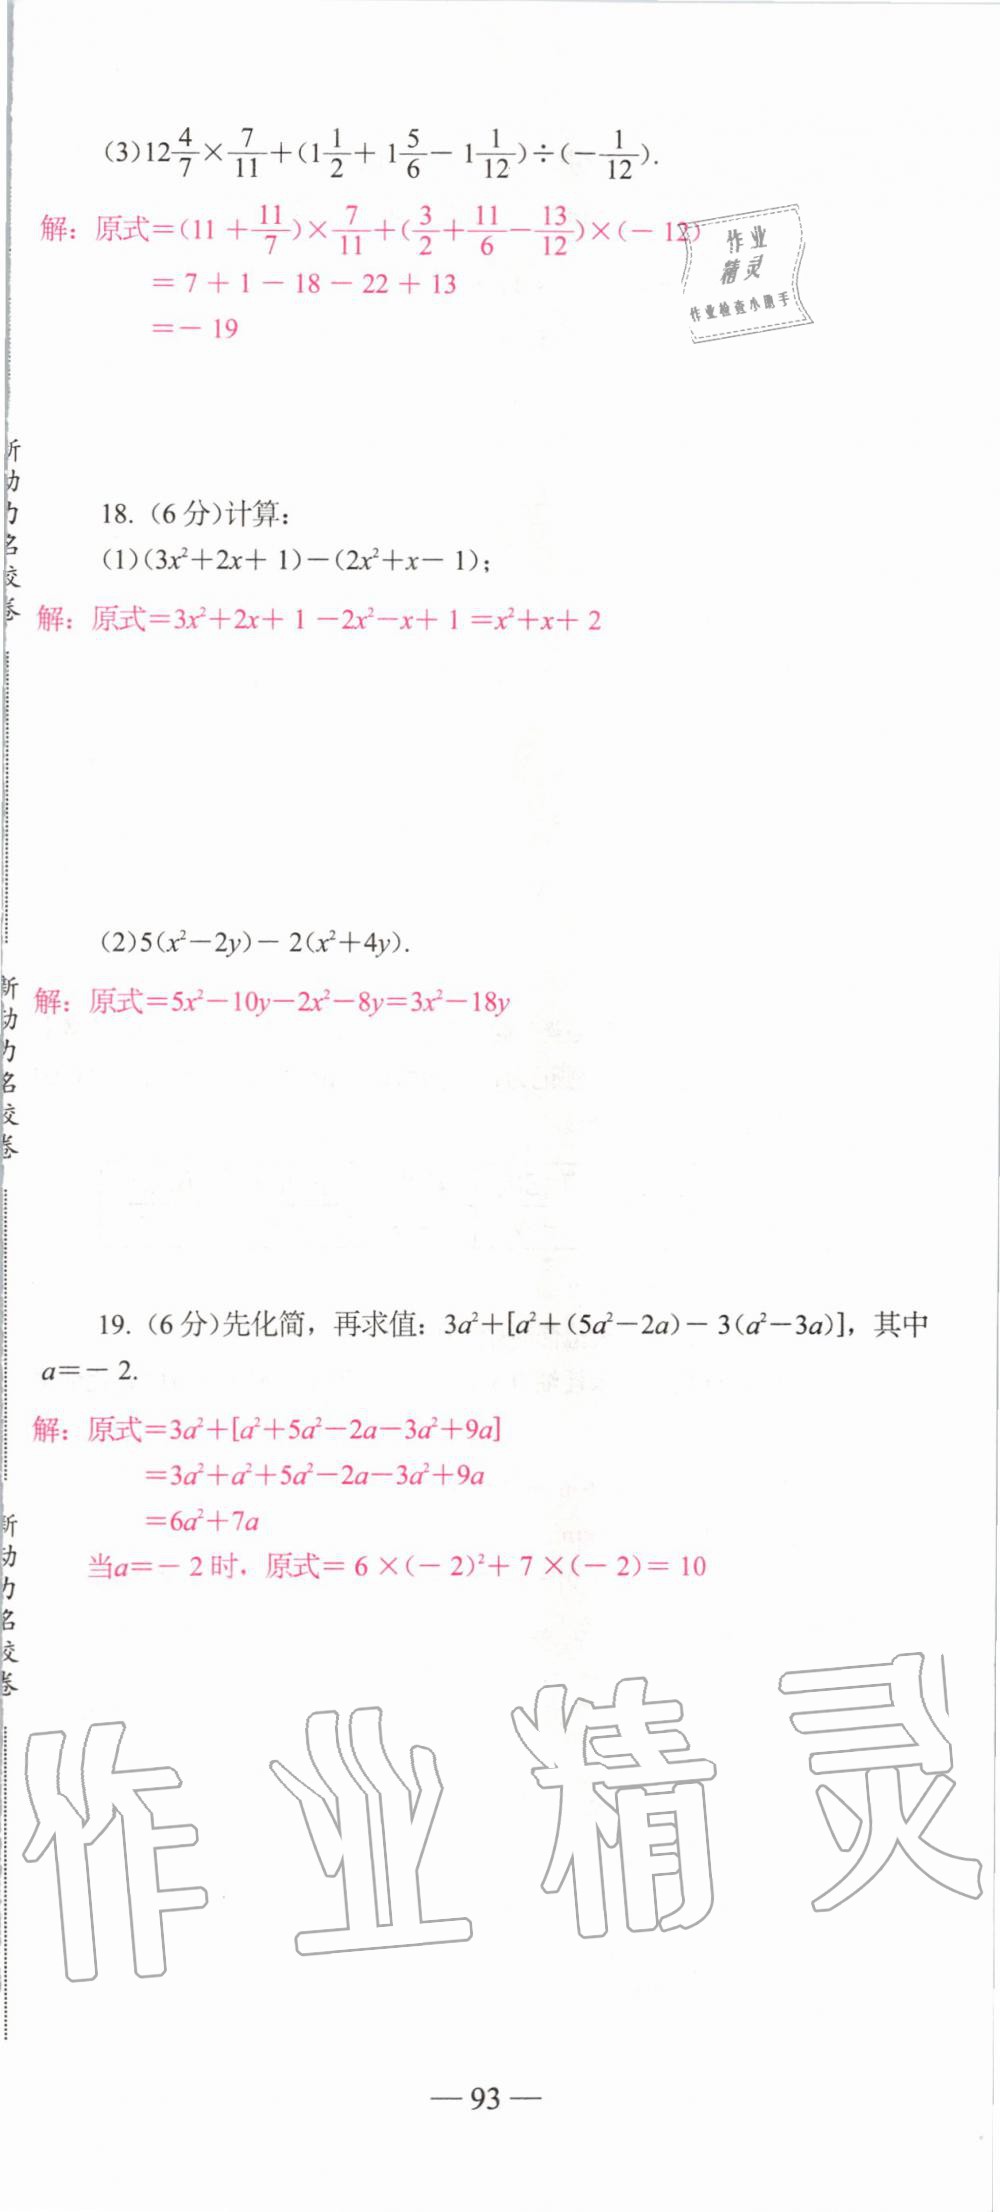 (3)12 4/7×7/11+(1 1/2+1 5/6-1 1/12)÷(-1/12).
解：原式=(11+11/7)×7/11+(3/2+11/6-13/12)×(-12)
=7+1-18-22+13
=-19
作业
精灵
作业检查小助手
18.(6分)计算：
(1)(3x²+2x+1)-(2x²+x-1)；
解：原式=3x²+2x+1-2x²-x+1=x²+x+2
(2)5(x²-2y)-2(x²+4y).
解：原式=5x²-10y-2x²-8y=3x²-18y
19.(6分)先化简，再求值：3a²+[a²+(5a²-2a)-3(a²-3a)]，其中
a=-2.
解：原式=3a²+[a²+5a²-2a-3a²+9a]
=3a²+a²+5a²-2a-3a²+9a
=6a²+7a
当a=-2时，原式=6×(-2)²+7×(-2)=10
作业精灵
— 93 —
新动力名校卷
新动力名校卷
新动力名校卷